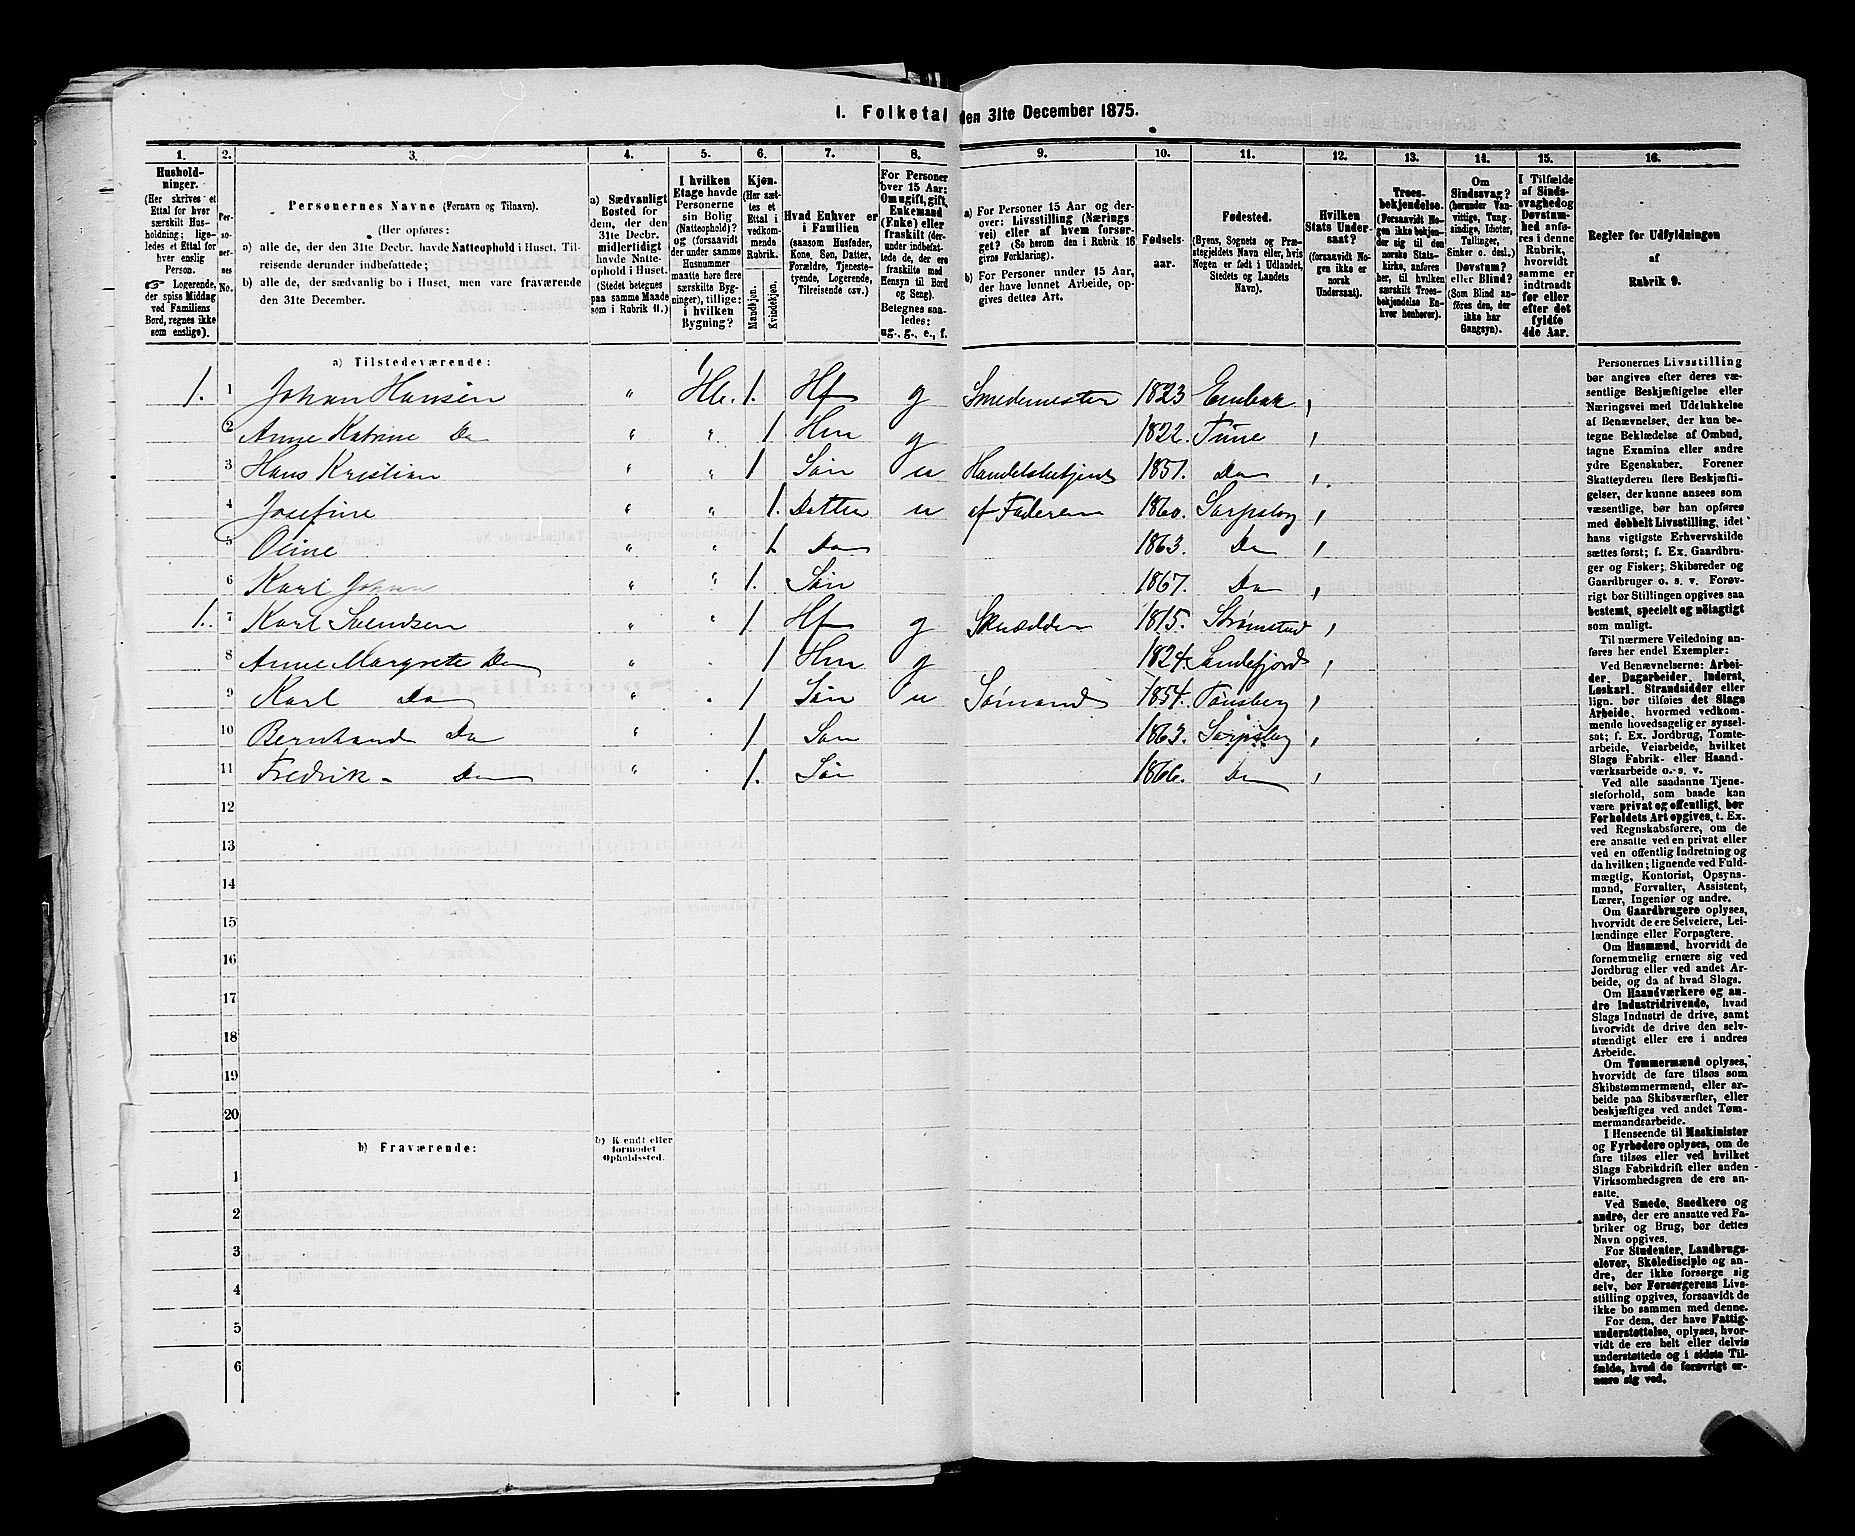 1. Folketal den 31te December 1875.
1. 2. 3. 4. 5. 6. 7. 8. 9. 10. 11. 12. 13. 14. 15. 16.
Hushold-
ninger.
(Her skrives et
Ettal for hver
særskilt Hus-
holdning; lige-
ledes et Ettal for
hver enslig
Person.
☞ Logerende,
der spise Middag
ved Familiens
Bord, regnes ikke
som enslige).
Per-
so-
ner-
nes
No.
Personernes Navne (Fornavn og Tilnavn).
(Her opføres:
a) alle de, der den 31te Decbr. havde Natteophold i Huset, Til-
reisende derunder indbefattede;
b) alle de, der sædvanlig bo i Huset, men vare fraværende
den 31te December.
a) Sædvanligt
Bosted for
dem, der den
31te Decbr.
midlertidigt
havde Natte-
ophold i Huset.
(Stedet betegnes
paa samme Maade
som i Rubrik 11.)
I hvilken
Etage havde
Personerne
sin Bolig
(Natteophold)?
og (forsaavidt
der under samme
Husnummer
maatte høre flere
særskilte Byg-
ninger), tillige:
i hvilken
Bygning?
Kjøn.
(Her sæt-
tes et
Ettal i
vedkom-
mende
Rubrik.
Mandkjøn.
Kvindekjøn.
Hvad Enhver er
i Familien
(saasom Husfader,
Kone, Søn, Datter,
Forældre, Tjeneste-
tyende, Logerende,
Tilreisende osv.)
For Personer
over 15 Aar:
Om ugift, gift,
Enkemand
(Enke) eller
fraskilt (der-
under indbefat-
tede de, der ere
fraskilte med
Hensyn til Bord
og Seng).
Betegnes saa-
ledes:
ug., g., e., f.
a) For Personer 15 Aar og der-
over: Livsstilling (Nærings-
vei) eller af hvem forsør-
get? (Se herom den i Rubrik 16
givne Forklaring).
b) For Personer under 15 Aar,
der have lønnet Arbeide, op-
gives dettes Art.
Fødsels-
aar.
Fødested.
(Byens, Sognets og Præ-
stegjeldets Navn eller, hvis
Nogen er født i Udlandet,
Stedets og Landets
Navn).
Hvilken
Stats Under-
saat?
(forsaavidt No-
gen ikke er
norsk
Undersaat).
Troes-
bekjendelse.
(Forsaavidt No-
gen ikke bekjen-
der sig til den
norske Stats-
kirke, anføres
her, til hvilken
særskilt Troes-
bekjendelse En-
hver henhører).
Om
Sindssvag?
(herunder Van-
vittige, Tung-
sindige, Idioter,
Tullinger,
Sinker o. desl.)
Døvstum?
eller Blind?
(Som Blind an-
føres den, der
ikke har
Gangsyn).
I Tilfælde
af Sinds-
svaghed og
Døvstum-
hed anfø-
res i denne
Rubrik,
hvorvidt
samme er
indtraadt
før eller
efter det
fyldte
4de Aar.
Regler for Udfyldningen
af
Rubrik 9.
a) Tilstedeværende:
1. 1 Johan Hansen " 1 Hb. 1. Hf g Smedemester 1823 ,
2 Anne Katrine Do " " 1 Hm g 1822. Tune ,
3 Hans Kristian " " 1 Søn u Handelsbetjent 1851. Do ,
4 Josefine " " 1. Datter u af Faderen 1860. Sarpsborg ,
5 Oline " " 1 Do 1863. Do ,
6 Karl Johan " " 1. Søn 1867. Do ,
1. 7 Karl Svendsen " " 1. Hf g Skrædder 1815. Strømstad ,
8 Anne Margrete Do " 1 Hm g 1824. Sandefjord ,
9 Karl Do " 1 Søn u Sømand 1854. Tønsberg ,
10 Bernhand Do " 1 Søn 1863. Sarpsborg ,
11 Fredrik Do " 1. Søn 1866. Do ,
12
13
14
15
16
17
18
19
20
b) Fraværende:
b) Kjendt eller
formodet
Opholdssted.
1
2
3
4
5
6
Personernes Livsstilling
bør angives efter deres væ-
sentlige Beskjæftigelse eller
Næringsvei med Udelukkelse
af Benævnelser, der kun be-
tegne Beklædelse af Ombud,
tagne Examina eller andre
ydre Egenskaber. Forener
Skatteyderen flere Beskjæfti-
gelser, der kunne ansees som
væsentlige, bør han opføres
med dobbelt Livsstilling, idet
hans vigtigste Erhvervskilde
sættes først; f. Ex. Gaardbru-
ger og Fisker; Skibsreder og
Gaardbruger o. s. v. Forøv-
rigt bør Stillingen opgives saa
bestemt, specielt og nöiagtigt
som muligt.
Til nærmere Veiledning an-
føres her endel Exempler:
Ved Benævnelserne: Arbei-
der, Dagarbeider, Inderst,
Løskarl, Strandsidder eller
lign. bør tilføies det Slags
Arbeide, hvormed vedkom-
mende hovedsagelig er syssel-
sat; f. Ex. Jordbrug, Tomte-
arbeide, Veiarbeide, hvilket
Slags Fabrik- eller Haand-
værksarbeide o. s. v.
Ved alle saadanne Tjene-
steforhold, som baade kan
være privat og offentligt, bør
Forholdets Art opgives, t. Ex.
ved Regnskabsførere, om de
ere ansatte ved en privat eller
ved en offentlig Indretning og
da hvilken; lignende ved Fuld-
mægtig, Kontorist, Opsyns-
mand, Forvalter, Assistent,
Lærer, Ingeniør og andre.
Om Gaardbrugere oplyses,
hvorvidt de ere Selveiere, Lei-
lændinge eller Forpagtere.
Om Husmænd, hvorvidt de
fornemmelig ernære sig ved
Jordbrug eller ved andet Ar-
beide, og da af hvad Slags.
Om Haandværkere og an-
dre Industridrivende, hvad
Slags Industri de drive, samt
hvorvidt de drive den selv-
stændigt eller ere i andres
Arbeide.
Om Tømmermænd oplyses,
hvorvidt de fare tilsøs som
Skibstømmermænd, eller ar-
beide paa Skibsværfter, eller
beskjæftiges ved andet Tøm-
mermandsarbeide.
I Henseende til Maskinister
og Fyrbødere oplyses, om de
fare tilsøs eller ved hvilket
Slags Fabrikdrift eller anden
Virksomhedsgren de ere an-
satte.
Ved Smede, Snedkere og
andre, der ere ansatte ved Fa-
briker og Brug, bør dettes
Navn opgives.
For Studenter, Landbrugs-
elever, Skoledisciple og an-
dre, der ikke forsørge sig
selv, bør Forsørgerens Livs-
stilling opgives, forsaavidt de
ikke bo sammen med denne.
For dem, der have Fattig-
understøttelse, oplyses, hvor-
vidt de ere helt eller delvis
understøttede og i sidste Til-
fælde, hvad de forøvrigt er-
nære sig ved.